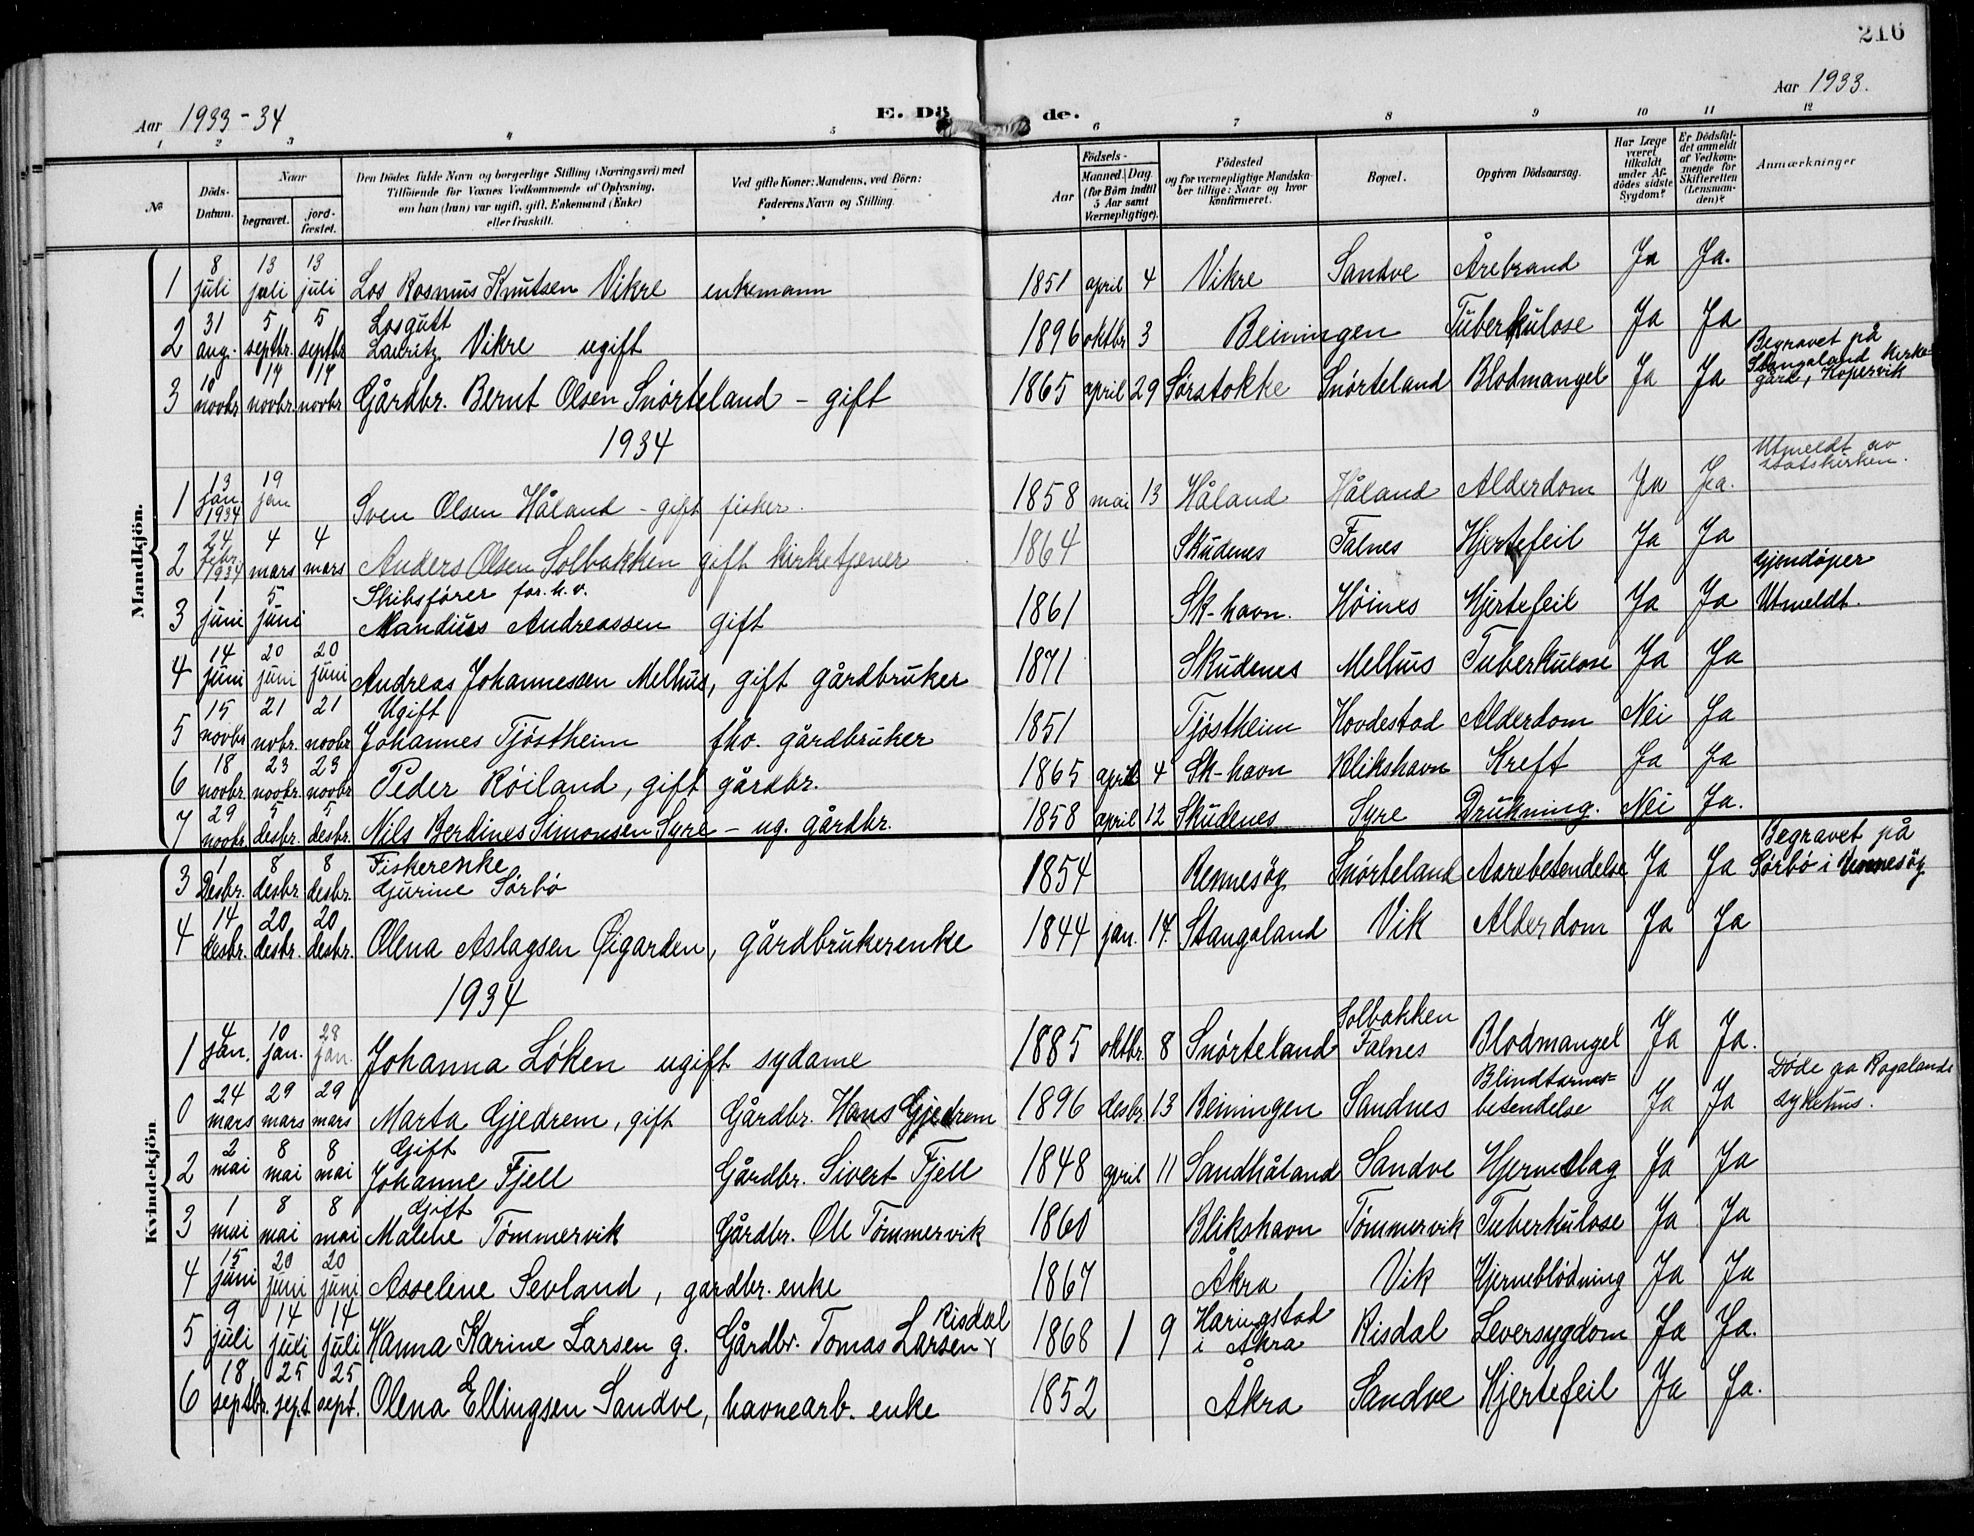 216
Aar 1933-34
E. Dö
de.
Aar 1933.
1 2 3 4 5 6 7 8 9 10 11 12
№
Döds-Datum.
Naar
begravet.
jord-fæstet.
Den Dödes fulde Navn og borgerlige Stilling (Næringsvei) med
Tilföiende for Voxnes Vedkommende af Oplysning,
om han (hun) var ugift, gift, Enkemand (Enke)
eller fraskilt.
Ved gifte Koner: Mandens, ved Börn:
Faderens Navn og Stilling.
Aar
Födsels-
Maaned. Dag
(for Börn indtil
5 Aar samt
Værnepligtige).
Födested
og for værnepligtige Mandska-
ber tillige: Naar og hvor
konfirmeret.
Bopæl.
Opgiven Dödsaarsag.
Har Læge
været
tilkaldt
under Af-
dödes sidste
Sygdom?
Er Dödsfal-
det anmeldt
af Vedkom-
mende for
Skifteretten
(Lensman-
den)?
Anmærkninger
Mandkjön.
1 8 juli 13 juli 13 juli Los Rasmus Knutsen Vikre enkemann 1851 april 4 Vikre Sandve Årebrand Ja Ja.
2 31 aug. 5 septbr. 5 septbr Losgutt Lauritz Vikre ugift 1896 oktbr 3 Beiningen Tuberkulose Ja Ja
3 10 novbr 17 novbr 17 novbr Gårdbr. Bernt Olsen Snörteland - gift 1865 april 29 Sörstokke Snörteland Blodmangel Ja Ja Begravet på Stangaland kirkegård, Kopervik
1934
1 13 jan. 1934 19 jan Sven Olsen Håland - gift fisker. 1858 mai 13 Håland Håland Alderdom Ja Ja. Utmeldt av statskirken.
2 24 febr. 1934 4 mars 4 mars Anders Olsen Solbakken gift kirketjener 1864 Skudenes Falnes Hjertefeil Ja Ja
3 1 juni 5 juni Skibsförer for. h. v. Mandius Andreassen gift 1861 Sk-havn. Höines Hjertefeil Ja Ja Gjendöper Utmeldt.
4 14 juni 20 juni 20 juni Andreas Johannessen Melhus, gift gårdbruker 1871 Skudenes Melhus Tuberkulose Ja Ja
5 15 novbr 21 nobr. 21 novbr Ugift Johannes Tjöstheim fho. gårdbruker 1851 Tjöstheim Hovdestad Alderdom Nei Ja
6 18 novbr. 23 novbr. 23 novbr Peder Röiland, gift gårdbr. 1865 april 4 Sk-havn Blikshavn Kreft Ja Ja
7 29 novbr 5 desbr. 5 desbr. Nils Berdines Simonsen Syre - ug. gårdbr. 1858 april 12 Skudenes Syre Drukning. Nei Ja.
Kvindekjön
3 1 Desbr. 8 desbr 8 desbr. Fiskerenke Gjurine Sörbö 1854 Rennesöy Snörteland Aarebetendelse Ja Ja Begravet på Sörbö i Rennesöy
4 14 desbr. 20 desbr. 20 desbr. Olena Aslagsen Öigarden, gårdbrukerenke 1844 jan. 14. Stangaland Vik Alderdom Ja Ja
1934
1 4 jan. 10 jan. 28 jan. Johanna Löken ugift sydame 1885 oktbr. 8 Snörteland Solbakken Falnes Blodmangel Ja Ja.
0 24 mars 29 mars 29 mars Marta Gjedrem, gift Gårdbr. Hans Gjedrem 1896 desbr. 13 Beiningen Sandnes Blindtarms=betendelse Ja Ja Döde aa Rogalands sykehus.
2 2 mai 8 mai 8 mai Gift Johanne Fjell Gårdbr. Sivert Fjell 1848 april 11 Sandhåland Sandve Hjerneslag Ja Ja
3 1 mai 8 mai 8 mai Gift Malene Tömmervik Gårdbr. Ole Tömmervik 1860 Blikshavn Tömmervik Tuberkulose Ja Ja
4 15 juni 20 juni 20 juni Asseline Sevland, gardbr. enke 1867 Åkra Vik Hjerneblödning Ja Ja
5 9 juli 14 juli 14 juli Hanna Karine Larsen g. Gårdbr. Tomas Larsen Risdal 1868 1 9 Haringstad i Åkra Risdal Leversygdom Ja Ja.
6 18 septbr. 25 sept 25 sept. Olena Ellingsen Sandve, havnearb. enke 1852 Åkra Sandve Hjertefeil Ja Ja.